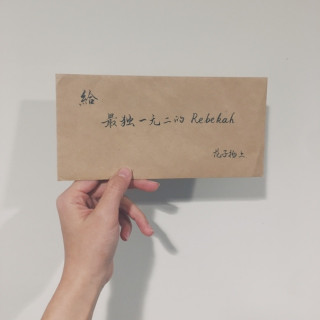 給
最独一无二的 Rebekah
花子格上